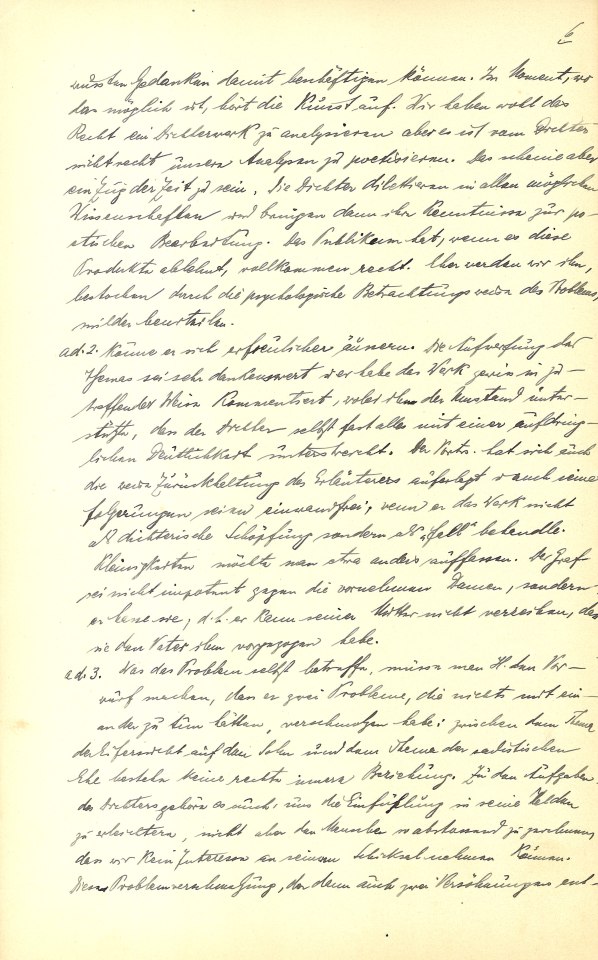 6
wussten Gedanken damit beschäftigen können. Im Moment, wo
das möglich ist, hört die Kunst auf. Wir haben wohl das
Recht ein Dichterwerk zu analysieren aber es ist vom Dichter
nicht recht unsere Analysen zu poetisieren. Das scheine aber
ein Zug der Zeit zu sein. Die Dichter dilettieren in allen möglichen
Wissenschaften und bringen dann ihre Kenntnisse zur po-
etischen Bearbeitung. Das Publikum hat, wenn es diese
Produkte ablehnt, vollkommen recht. Eher werden wir ihn,
bestochen durch die psychologische Betrachtungsweise des Problems,
milder beurteilen.
ad. 2. könne er sich erfreulicher äussern. Die Aufwerfung des
Themas sei sehr dankenswert u er habe das Werk gewiss in zu-
treffender Weise kommentiert, wobei ihm der Umstand unter-
stütze, dass der Dichter selbst fast alles mit einer aufdring-
lichen Deutlichkeit unterstreicht. Der Vortr. hat sich auch
die weise Zurückhaltung des Erläuterers auferlegt u auch seine
Folgerungen seien einwandfrei, wenn er das Werk nicht
als dichterische Schöpfung sondern als "Fall" behandle.
Kleinigkeiten möchte man etwa anders auffassen. Der Graf
sei nicht impotent gegen die vornehmen Damen, sondern
er hasse sie, d.h. er kann seiner Mutter nicht verzeihen, dass
sie den Vater ihm vorgezogen habe.
ad. 3. Was das Problem selbst betreffe, müsse man H. den Vor-
wurf machen, dass er zwei Probleme, die nichts mit ein-
ander zu tun hätten, verschmolzen habe: zwischen dem Thema
der Eifersucht auf den Sohn und dem Thema der sadistischen
Ehe bestehe keine rechte innere Beziehung. Zu den Aufgaben
des Dichters gehöre es auch: uns die Einfühlung in seine Helden
zu erleichtern, nicht aber den Menschen so abstossend zu zeichnen,
dass wir kein Interesse an seinem Schicksal nehmen können.
Diese Problemverschmelzung, der dann auch zwei Versöhnungen ent-